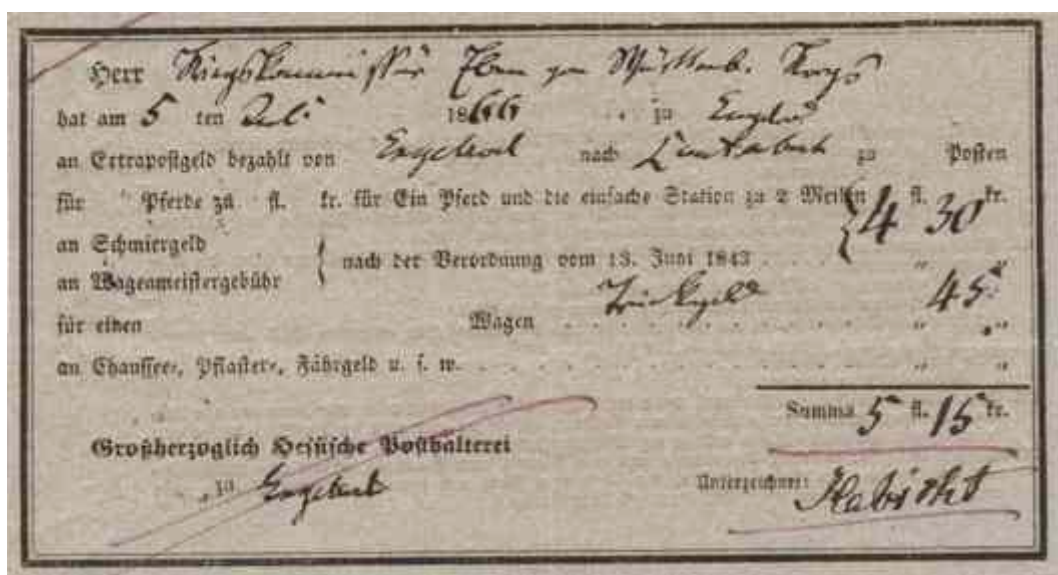 Herr Kriegskommissär Eben zum Württemb. Korps
hat am 5 ten Juli 1866 zu
an Extrapostgeld bezahlt von Engelrod nach Lauterbach zu Posten
für " Pferde zu fl. kr. für Ein Pferd und die einfache Station zu 2 Meilen 4 fl. 30 kr.
an Schmiergeld
an Wagenmeistergebühr nach der Verordnung vom 13. Juni 1843 . . . " "
für einen Wagen Trinkgeld . . . . . . . . " 45 "
an Chaussee-, Pflaster-, Fährgeld u. s. w. . . . . . . . . . . . " "
Summa 5 fl. 15 kr.
Großherzoglich Hessische Posthalterei
zu Engelrod
Unterzeichner: Habicht